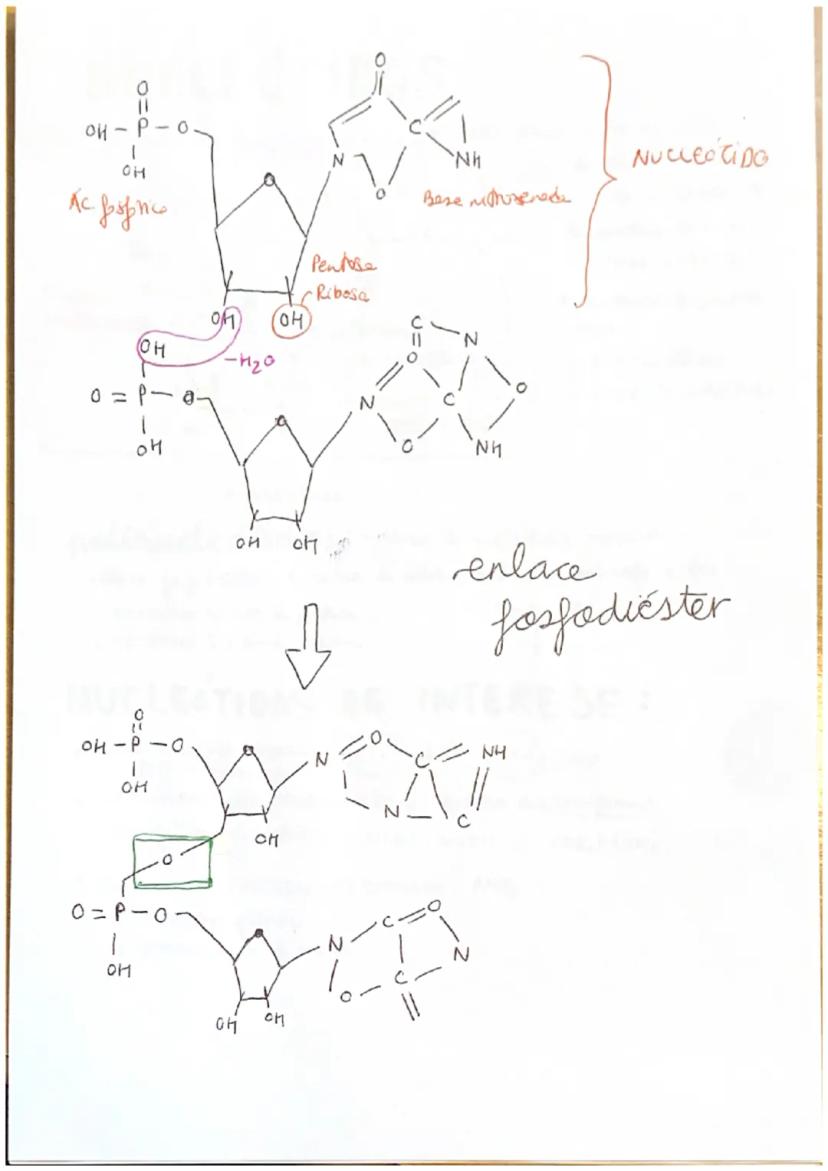 O
OH - P - O
OH
Ác. fosfórico
O
N
C
NH
O
Base nitrogenada
NUCLEÓTIDO
O
Pentosa
Ribosa
OH
OH
OH
-H2O
O = P - O
OH
O
N
O
C
N
O
C
O
NH
OH
OH
enlace
fosfodiéster
O
OH - P - O
OH
O
OH
N
O
C
NH
N
C
O
O = P - O
OH
O
OH
OH
N
C
O
N
C
O